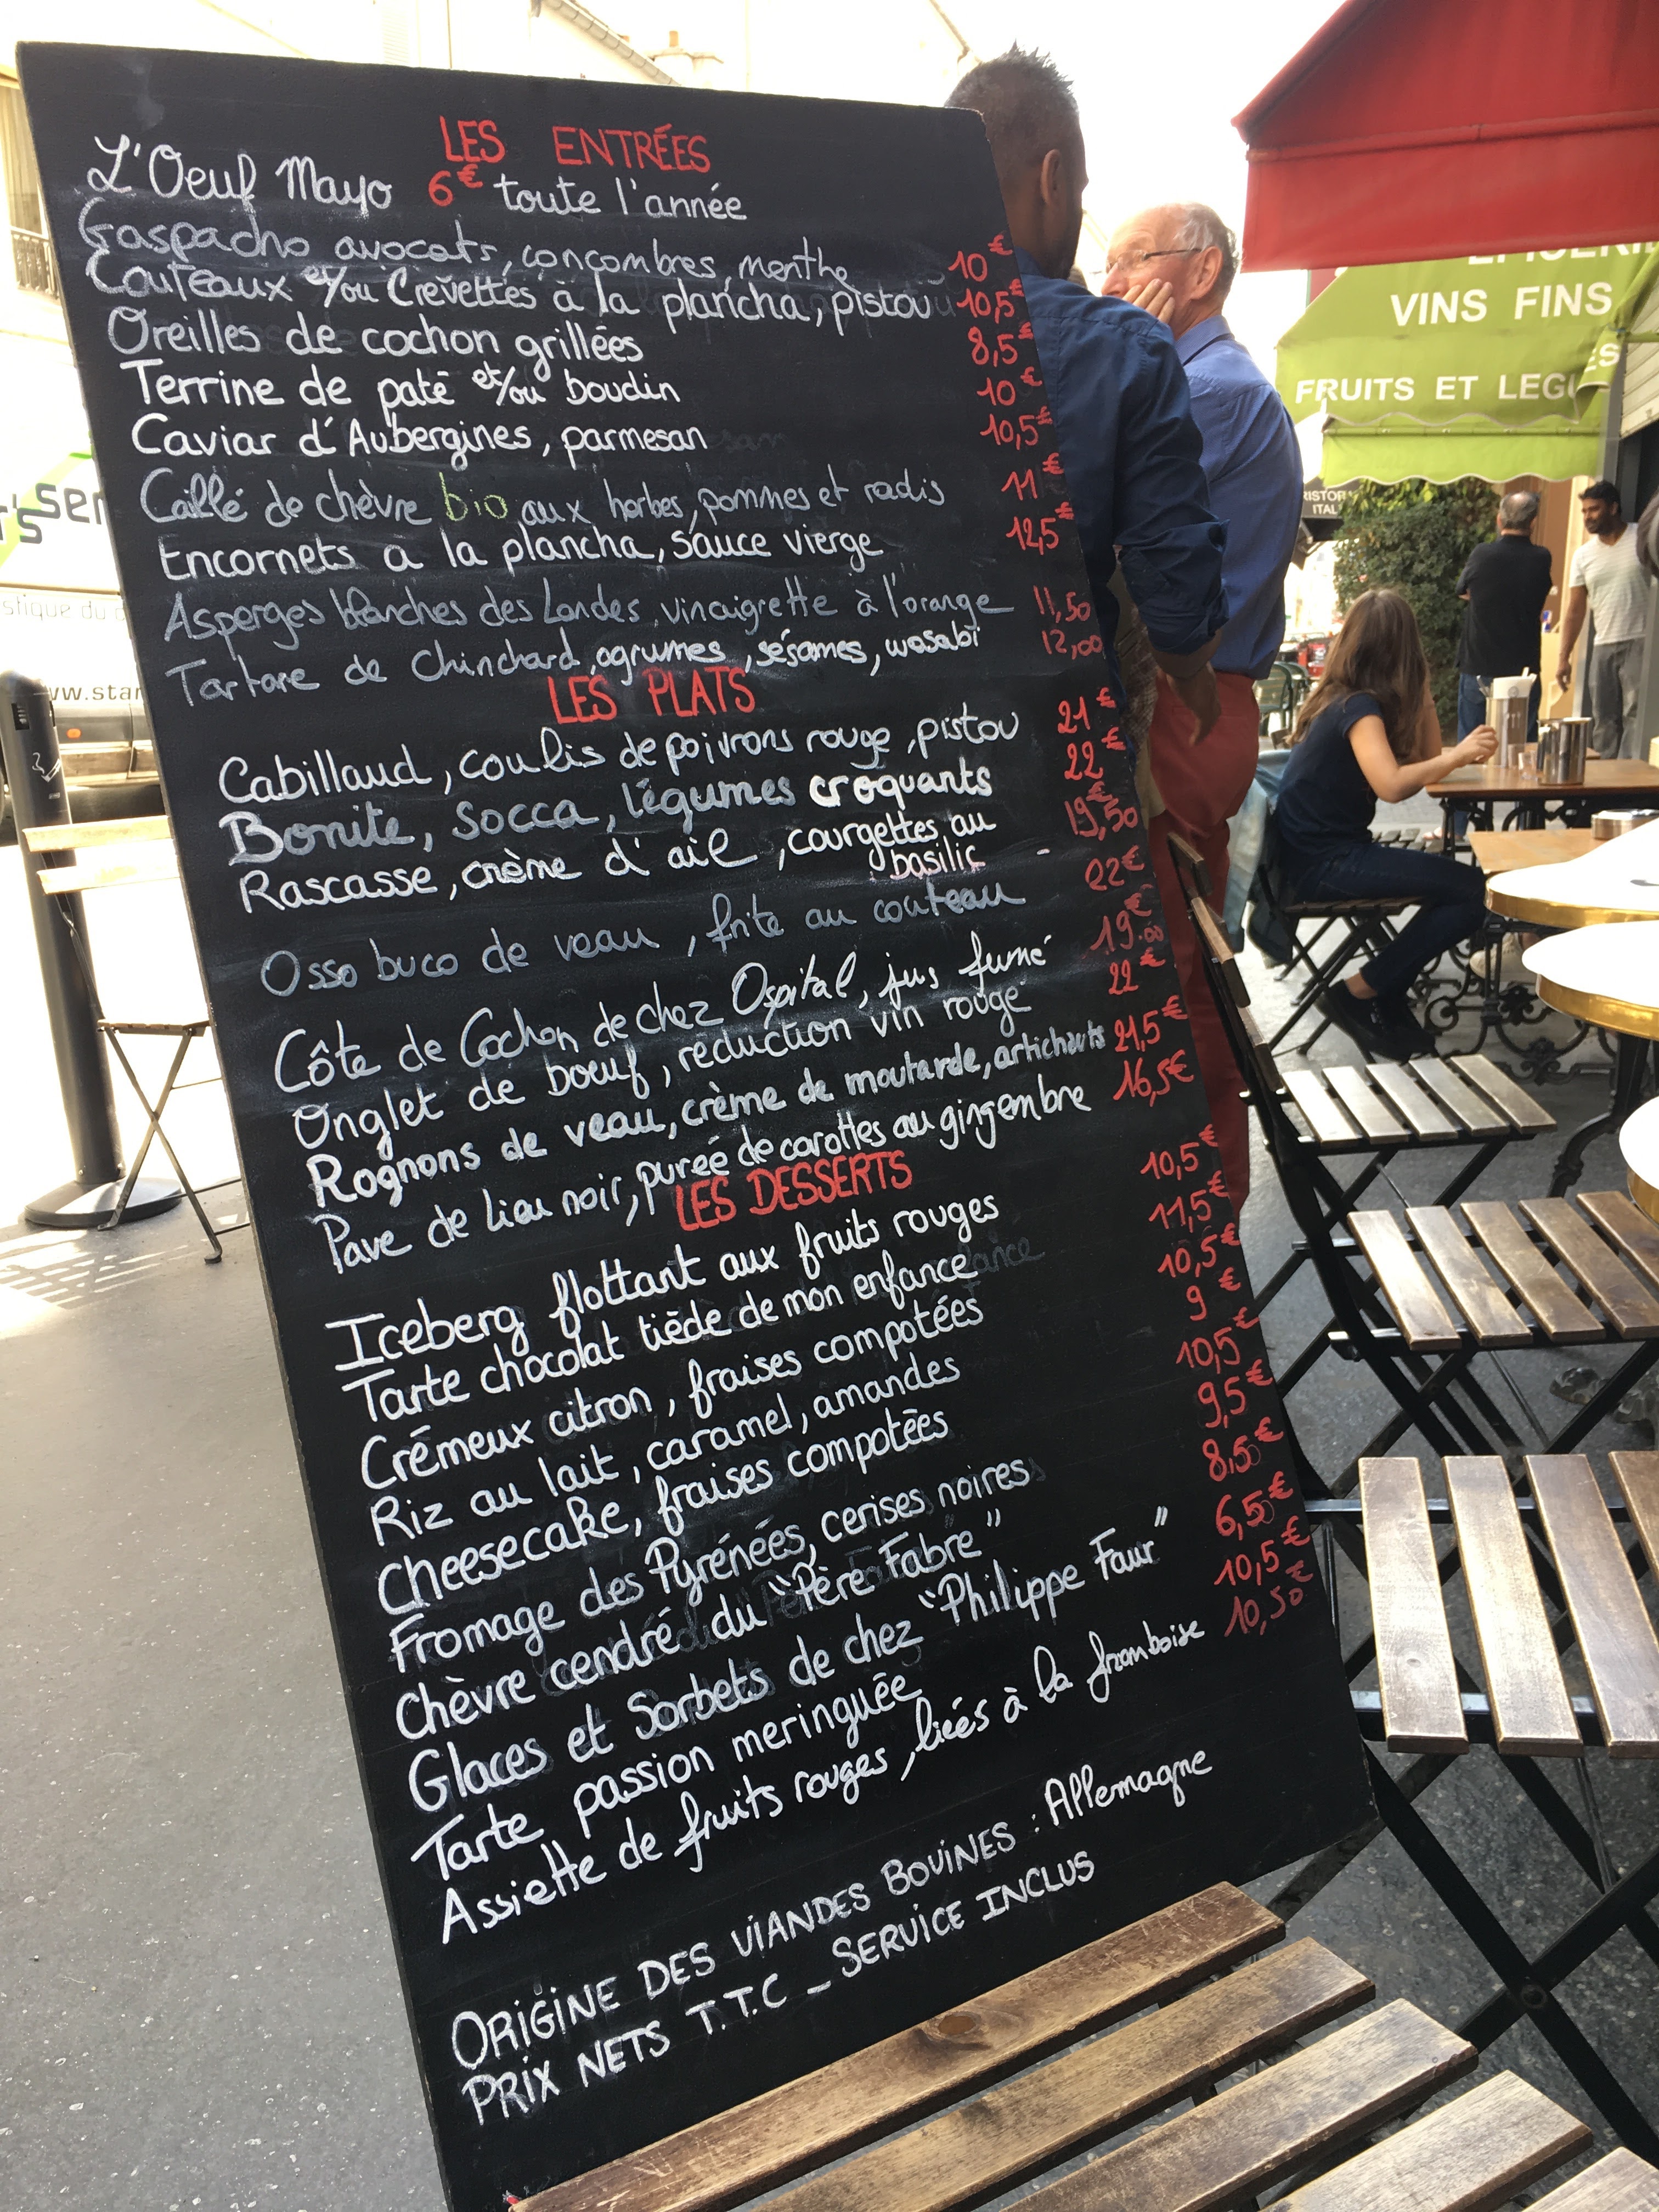 LES ENTRÉES
L'Oeuf Mayo 6€ toute l'année
Gaspacho avocats, concombres, menthe 10€
Couteaux et/ou Crevettes à la plancha, pistou 10,5€
Oreilles de cochon grillées 8,5€
Terrine de paté et/ou boudin 10€
Caviar d'Aubergines, parmesan 10,5€
Caillé de chèvre bio aux herbes, pommes et radis 11€
Encornets a la plancha, sauce vierge 12,5€
Asperges blanches des Landes, vinaigrette à l'orange 11,50
Tartare de Chinchard, agrumes, sésames, wasabi 12,00
LES PLATS
Cabillaud, coulis de poivrons rouge, pistou 21€
Bonite, Socca, légumes croquants 22€
Rascasse, crème d'ail, courgettes au 19,50€
basilic
Osso buco de veau, frite au couteau 22€
Côte de Cochon de chez Ospital, jus fumé 19.00€
Onglet de boeuf, réduction vin rouge 22€
Rognons de veau, crème de moutarde, artichauts 21,5€
Pave de lieu noir, purée de carottes au gingembre 16,5€
LES DESSERTS
Iceberg flottant aux fruits rouges 10,5€
Tarte chocolat tiède de mon enfance 11,5€
Crémeux citron, fraises compotées 10,5€
Riz au lait, caramel, amandes 9€
Cheesecake, fraises compotées 10,5€
Fromage des Pyrénées, cerises noires 9,5€
Chèvre cendré du "Père Fabre" 8,50€
Glaces et Sorbets de chez "Philippe Faur" 6,50€
Tarte passion meringuée 10,5€
Assiette de fruits rouges, liées à la framboise 10,50€
ORIGINE DES VIANDES BOVINES : Allemagne
PRIX NETS T.T.C _ SERVICE INCLUS
VINS FINS
FRUITS ET LEGU ES
stique du
ww.star